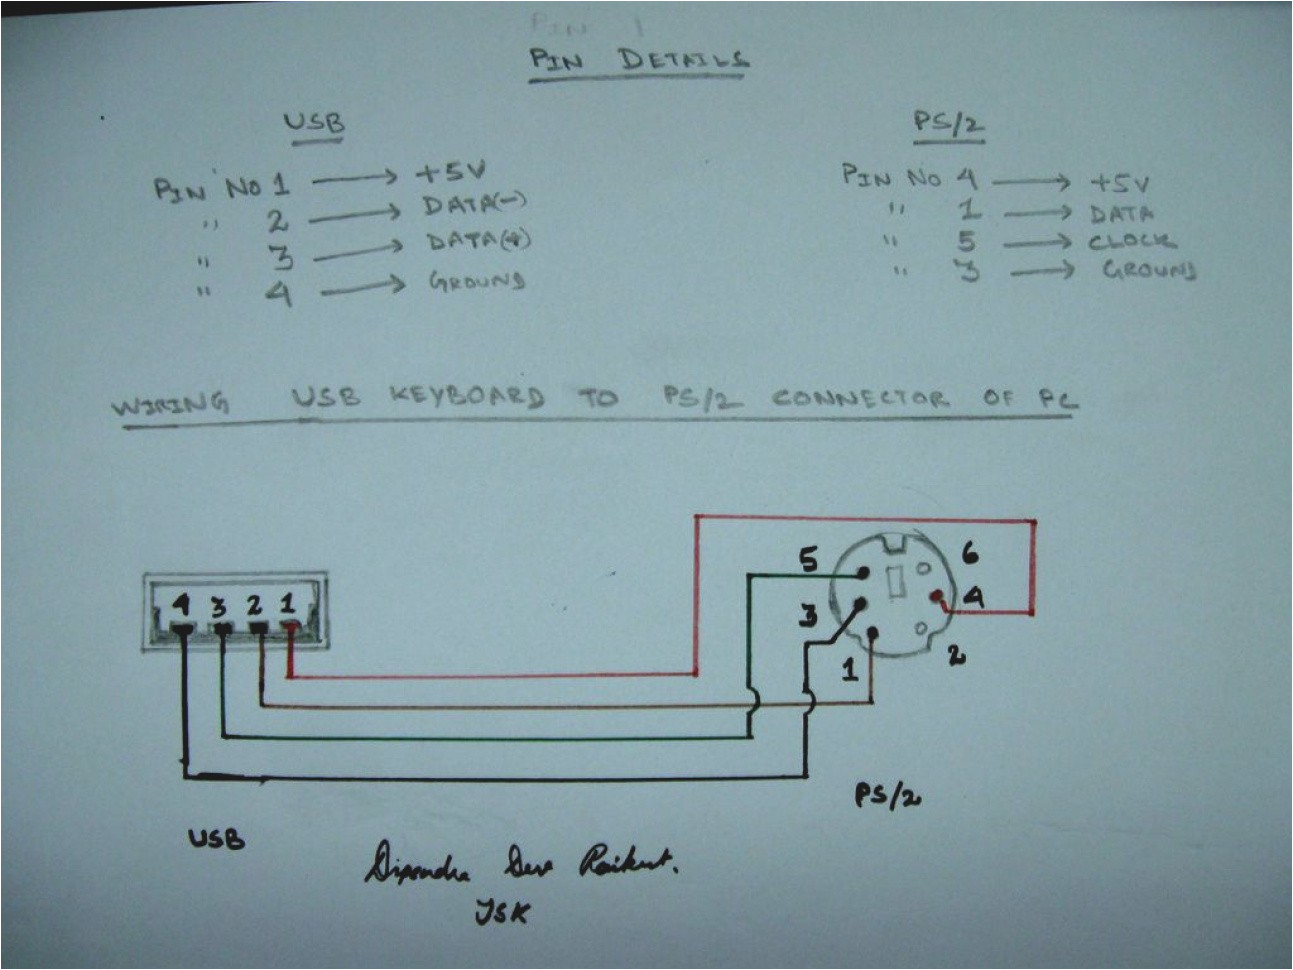 PIN 1
PIN DETAILS
USB
PIN NO 1 → +5V
" 2 → DATA(-)
" 3 → DATA(+)
" 4 → GROUND
PS/2
PIN NO 4 → +5V
" 1 → DATA
" 5 → CLOCK
" 3 → GROUND
WIRING USB KEYBOARD TO PS/2 CONNECTOR OF PC
4 3 2 1
5 6
3 4
1 2
PS/2
USB
Dipendra Dev Raikut.
JSK